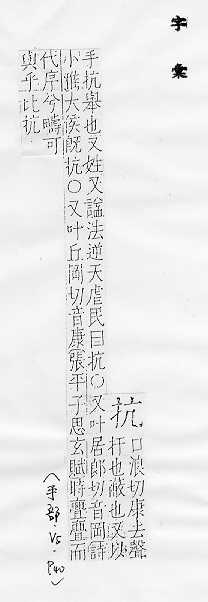 字彙
抗 口浪切康去聲
扞也蔽也又以
手抗舉也又姓又謚法逆天虐民曰抗○又叶居郎切音岡詩
小雅大侯既抗○又叶丘岡切音康張平子思玄賦時亹亹而
代序兮疇可
與乎比抗
(手部·V5·P40)